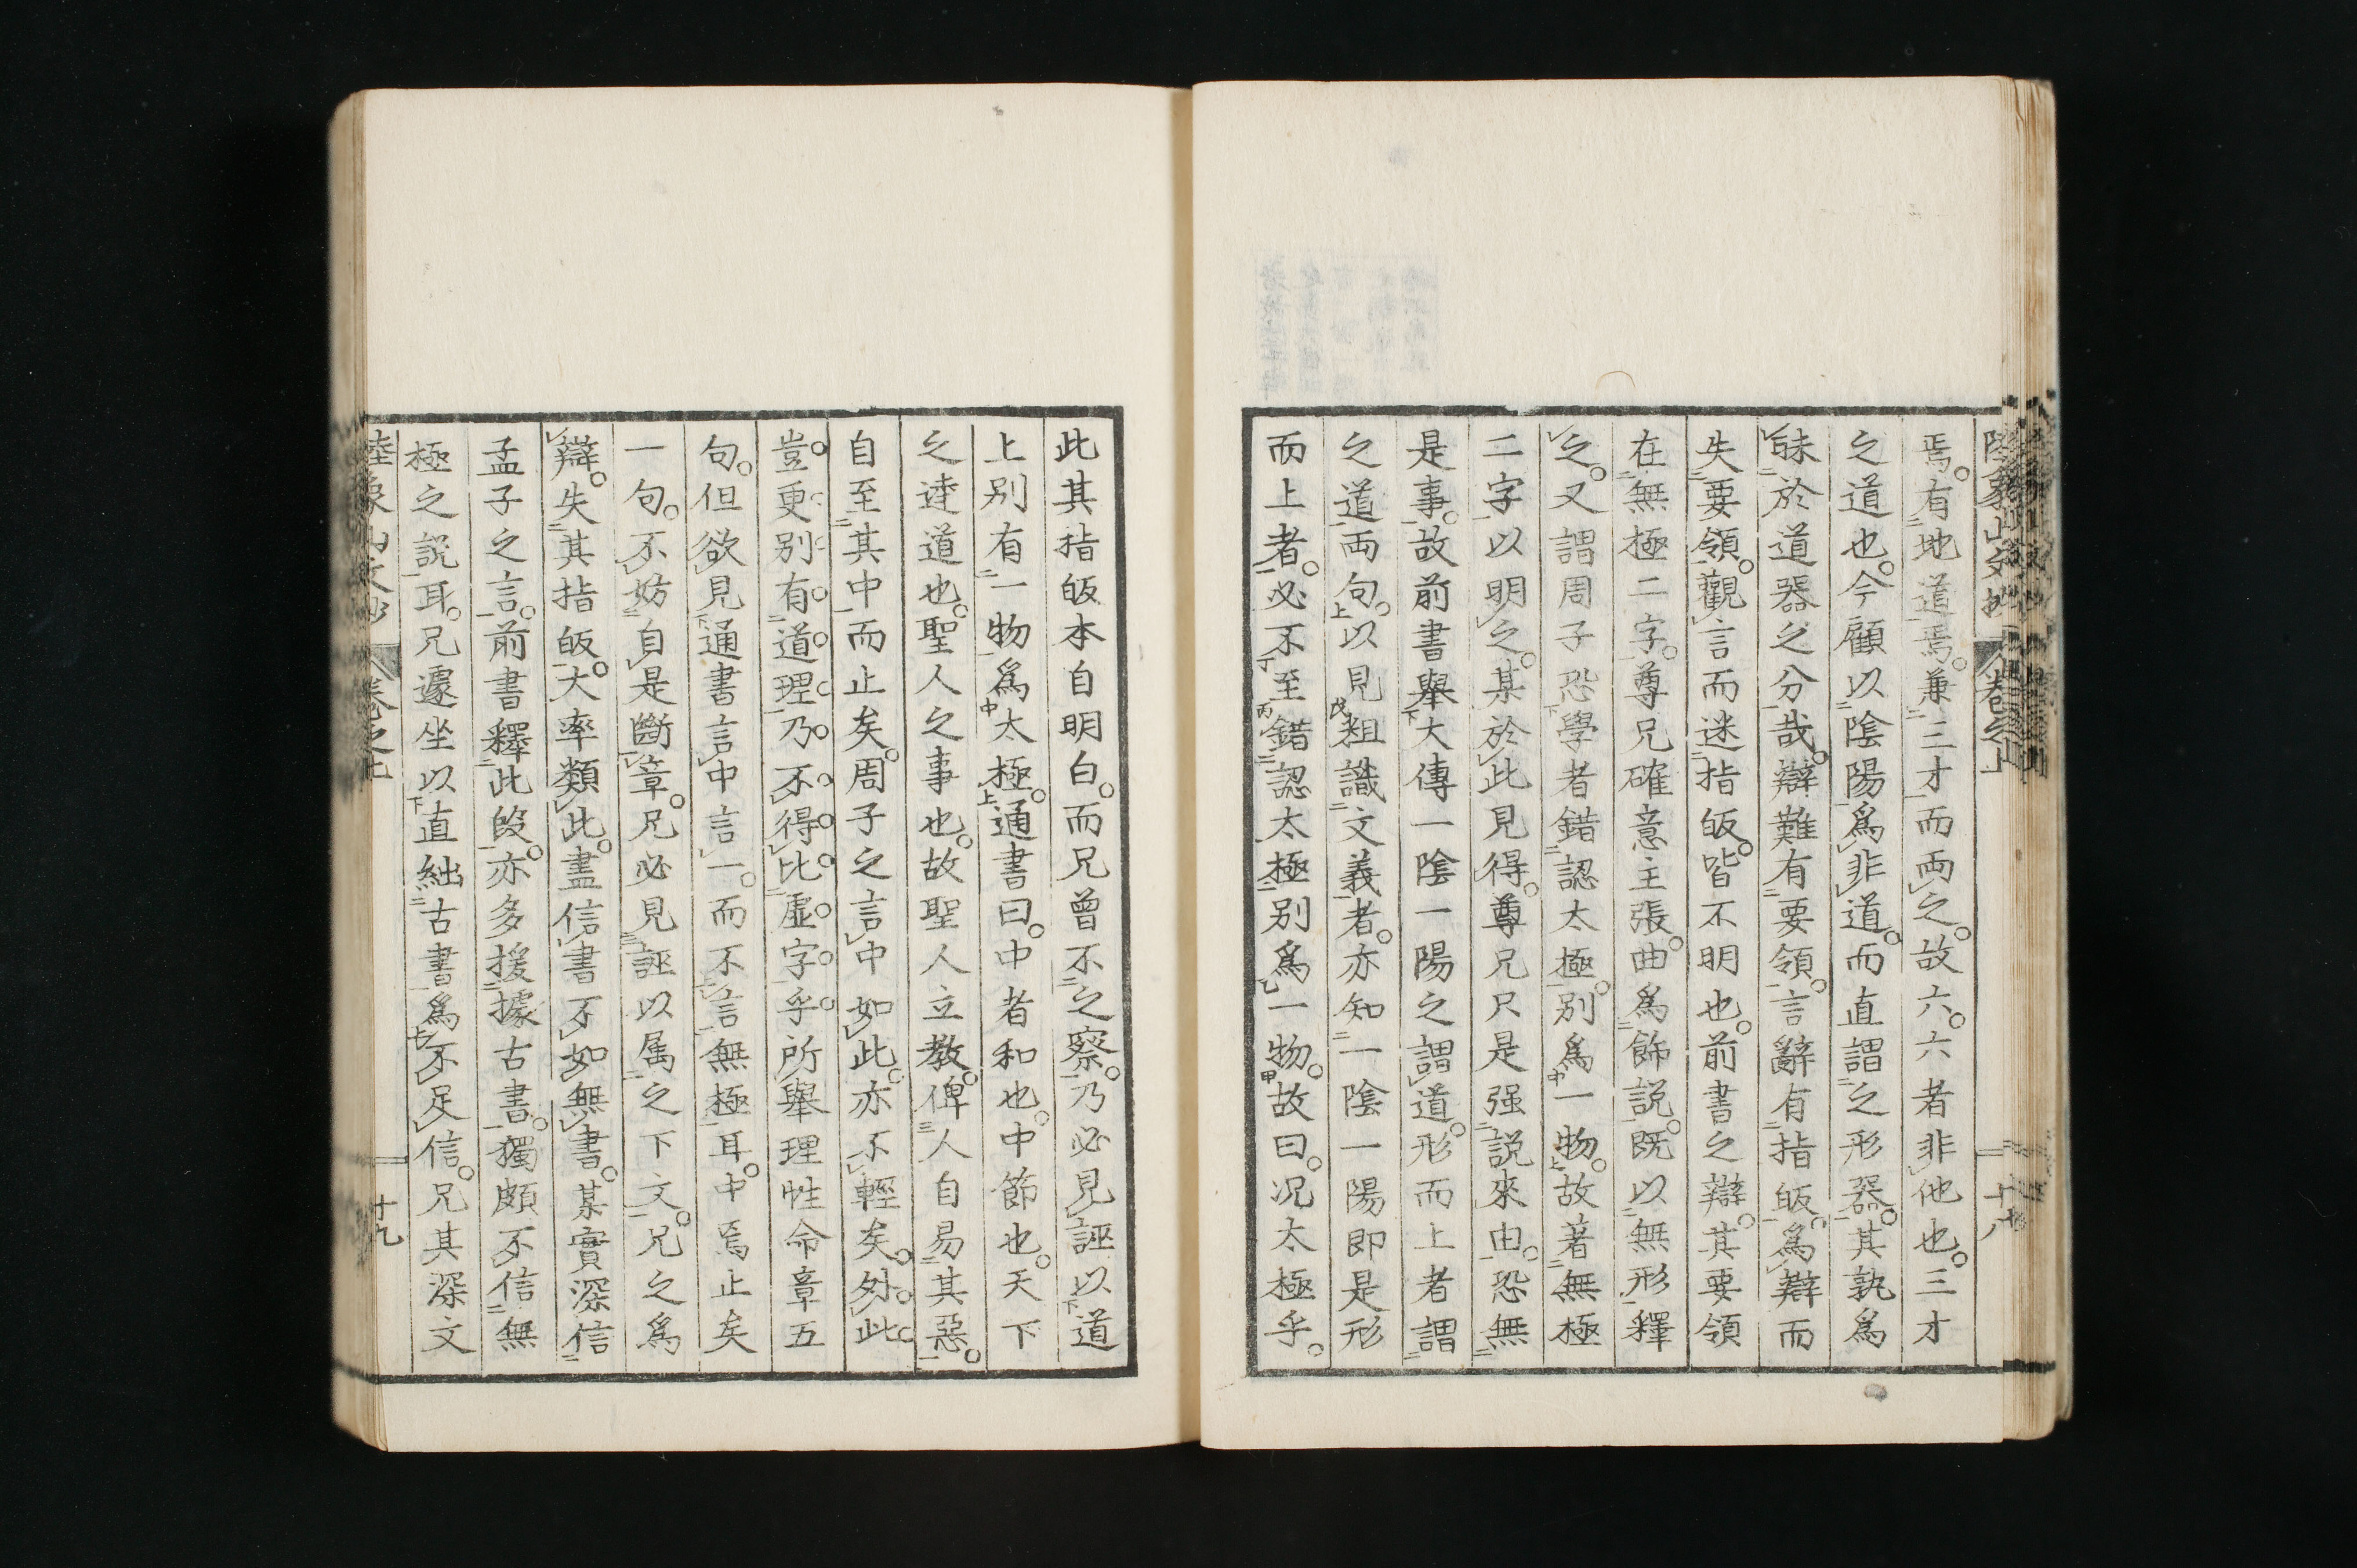 焉。有地道焉。兼三才而両之。故六。六者非他也。三才
之道也。今顧以陰陽爲非道。而直謂之形器。其孰爲
昧於道器之分哉。辯難有要領。言辭有指皈。爲辯而
失要領。觀言而迷指皈。皆不明也。前書之辯。其要領
在無極二字。尊兄確意主張。曲爲飾説。既以無形釋
之。又謂周子恐學者錯認太極。別爲一物。故著無極
二字以明之。某於此見得。尊兄只是强説來由。恐無
是事。故前書舉大傳一陰一陽之謂道。形而上者謂
之道両句。以見粗識文義者。亦知一陰一陽即是形
而上者。必不至錯認太極別爲一物。故曰。况太極乎。
此其指皈本自明白。而兄曾不之察。乃必見誣以道
上別有一物爲太極。通書曰。中者和也。中節也。天下
之達道也。聖人之事也。故聖人立教。俾人自易其惡。
自至其中而止矣。周子之言中如此。亦不輕矣。外此
豈更別有道理。乃不得比虛字乎。所舉理性命章五
句。但欲見通書言中言一。而不言無極耳。中焉止矣
一句。不妨自是斷章。兄必見誣以属之下文。兄之爲
辯。失其指皈。大率類此。盡信書不如無書。某實深信
孟子之言。前書釋此段。亦多援據古書。獨頗不信無
極之説耳。兄遽坐以直絀古書爲不足信。兄其深文
陸象山文抄
卷之上
十九